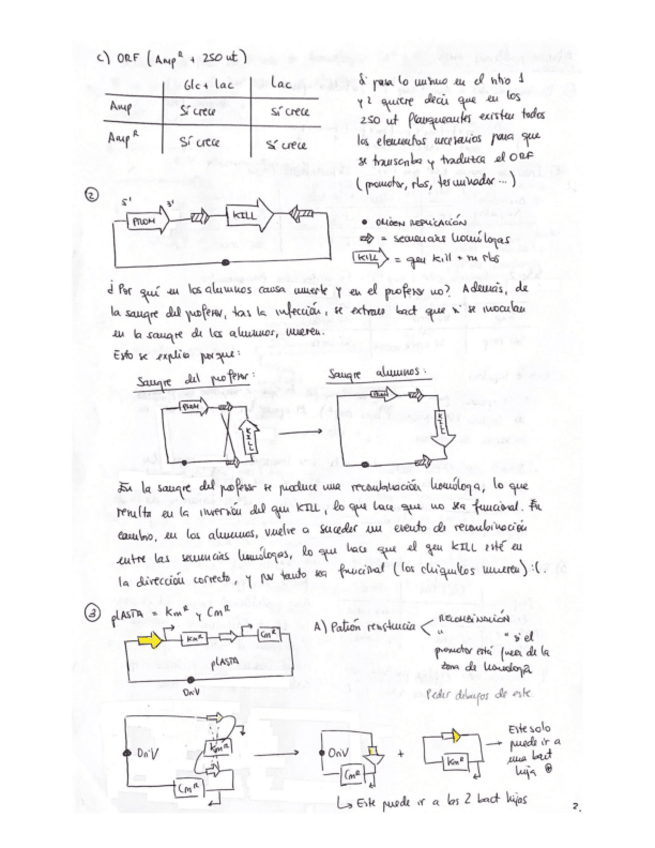 c) ORF (Amp^R + 250 nt)
Glc + lac
Lac
Amp
Sí crece
Sí crece
Amp^R
Sí crece
Sí crece
Si pasa lo mismo en el nicho 1
y 2 quiere decir que en los
250 nt flanqueantes existen todos
los elementos necesarios para que
se transcriba y traduzca el ORF
(promotor, rbs, terminador ...)
②
5'
3'
PROM
KILL
• ORIGEN REPLICACIÓN
= secuencias homólogas
KILL = gen kill + su rbs
¿Por qué en los alumnos causa muerte y en el profesor no? Además, de
la sangre del profesor, tras la infección, se extraen bact que si se inoculan
en la sangre de los alumnos, mueren.
Esto se explica porque:
Sangre del profesor:
Sangre alumnos:
PROM
KILL
PROM
KILL
En la sangre del profesor se produce una recombinación homóloga, lo que
resulta en la inversión del gen KILL, lo que hace que no sea funcional. En
cambio, en los alumnos, vuelve a suceder un evento de recombinación
entre las secuencias homólogas, lo que hace que el gen KILL esté en
la dirección correcta, y por tanto sea funcional (los chiquillos mueren) :(.
③ pLASTA = Km^R y Cm^R
Km^R
Cm^R
pLASTA
OriV
A) Patrón resistencia
RECOMBINACIÓN
" " si el
promotor está fuera de la
zona de homología
Pedir dibujos de este
OriV
Km^R
Cm^R
OriV
Cm^R
+
Km^R
Este solo
puede ir a
una bact
hija
Este puede ir a las 2 bact hijas
2.